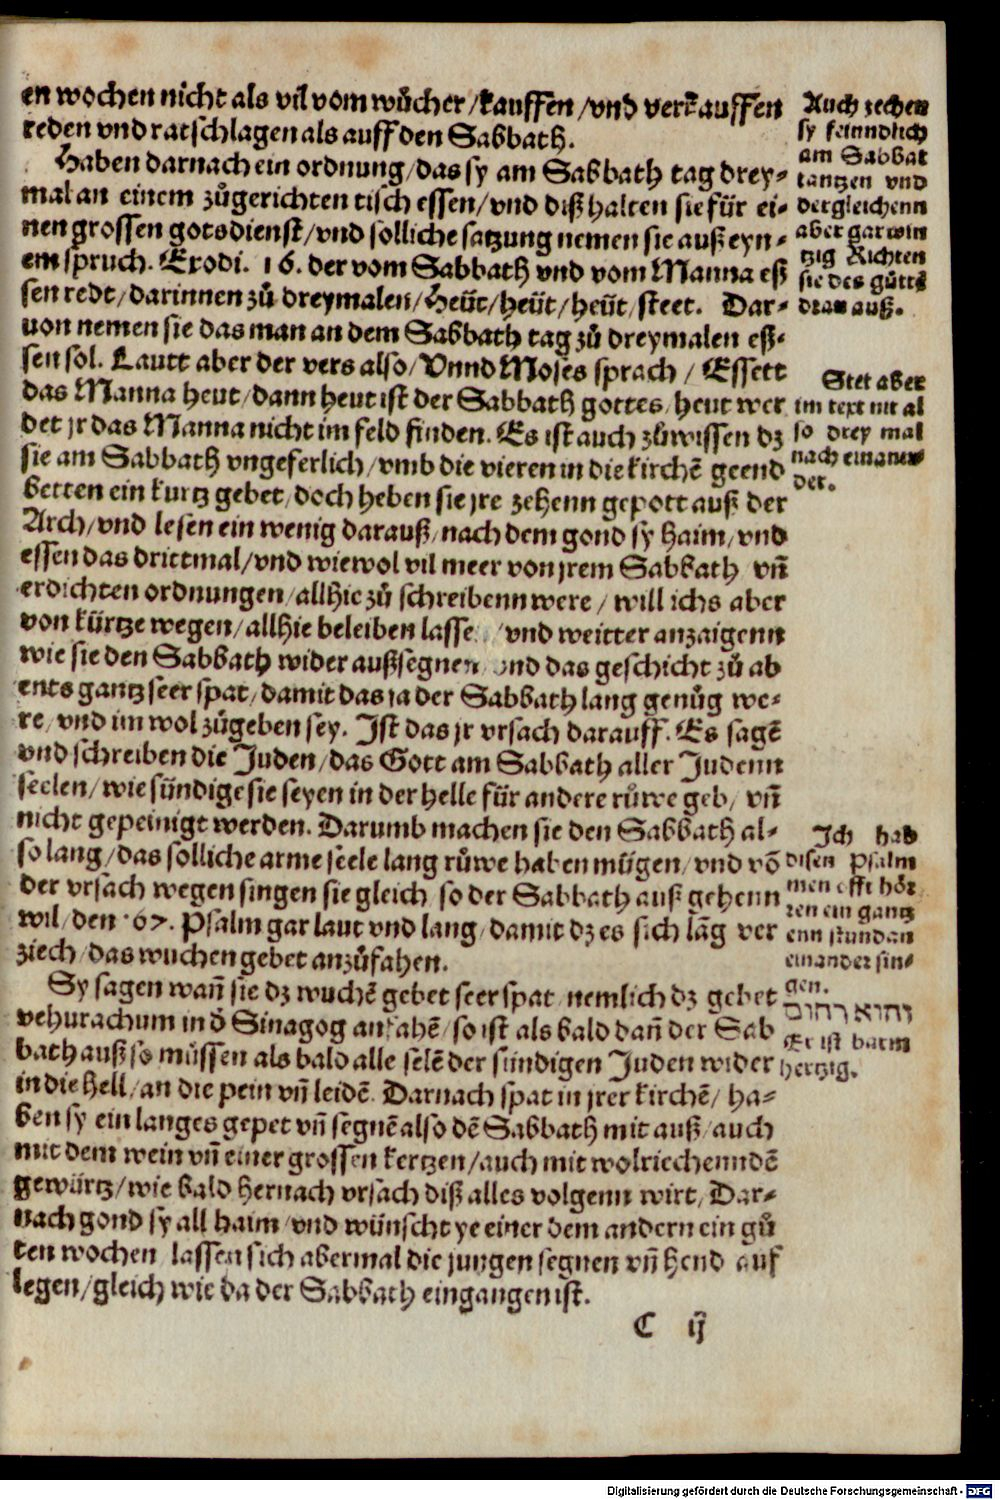 en wochen nicht als vil vom wůcher / kauffen / vnd verkauffen
reden vnd ratschlagen als auff den Sabbath.
Haben darnach ein ordnung / das sy am Sabbath tag drey-
mal an einem zůgerichten tisch essen / vnd diß halten sie für ei-
nen grossen gotsdienst / vnd solliche satzung nemen sie auß eyn-
em spruch. Exodi. 16. der vom Sabbath vnd vom Manna eß
sen redt / darinnen zů dreymalen / Heüt / heüt / heüt / steet. Dar-
von nemen sie das man an dem Sabbath tag zů dreymalen eß-
sen sol. Lautt aber der vers also / Vnnd Moses sprach / Essett
das Manna heut / dann heut ist der Sabbath gottes / heut wer
det jr das Manna nicht im feld finden. Es ist auch zůwissen dz
sie am Sabbath vngeferlich / vmb die vieren in die kirchē geend
betten ein kurtz gebet / doch heben sie jre zehenn gepott auß der
Arch / vnd lesen ein wenig darauß / nach dem gond sy haim / vnd
essen das drittmal / vnd wiewol vil meer von jrem Sabbath vñ
erdichten ordnungen / allhie zů schreibenn were / will ichs aber
von kürtze wegen / allhie beleiben lasse / vnd weitter anzaigenn
wie sie den Sabbath wider außsegnen vnd das geschicht zů ab
ents gantz seer spat / damit das ja der Sabbath lang genůg we-
re / vnd im wol zůgeben sey. Ist das jr vrsach darauff. Es sagē
vnd schreiben die Juden / das Gott am Sabbath aller Judenn
seelen / wie sündige sie seyen in der helle für andere růwe geb / vñ
nicht gepeinigt werden. Darumb machen sie den Sabbath al-
so lang / das solliche arme seele lang růwe haben mügen / vnd vō
der vrsach wegen singen sie gleich so der Sabbath auß gehenn
wil / den 67. Psalm gar laut vnd lang / damit dz es sich lāg ver
ziech / das wuchen gebet anzůfahen.
Sy sagen wañ sie dz wuchē gebet seer spat / nemlich dz gebet
vehurachum in d̄ Sinagog anfahē / so ist als bald dañ der Sab
bath auß so müssen als bald alle selē der sündigen Juden wider
in die hell / an die pein vñ leidē. Darnach spat in jrer kirchē / ha-
ben sy ein langes gepet vñ segnē also dē Sabbath mit auß / auch
mit dem wein vñ einer grossen kertzen / auch mit wolriechenndē
gewürtz / wie bald hernach vrsach diß alles volgenn wirt / Dar-
nach gond sy all haim / vnd wünscht ye einer dem andern ein gů
ten wochen lassen sich abermal die jungen segnen vñ hend auf
legen / gleich wie da der Sabbath eingangen ist.
C ij
Auch zechen
sy feinndlich
am Sabbat
tantzen vnd
dergleichenn
aber gar win
tzig Richten
sie des gůtts
dran auß.
Stet aber
im text nit al
so drey mal
nach einan-
der.
Ich hab
disen Psalm
men offt hör
ren ein gantz
enn stund an
einander sin-
gen.
והוא רחום
Er ist barm
hertzig.
Digitalisierung gefördert durch die Deutsche Forschungsgemeinschaft - DFG